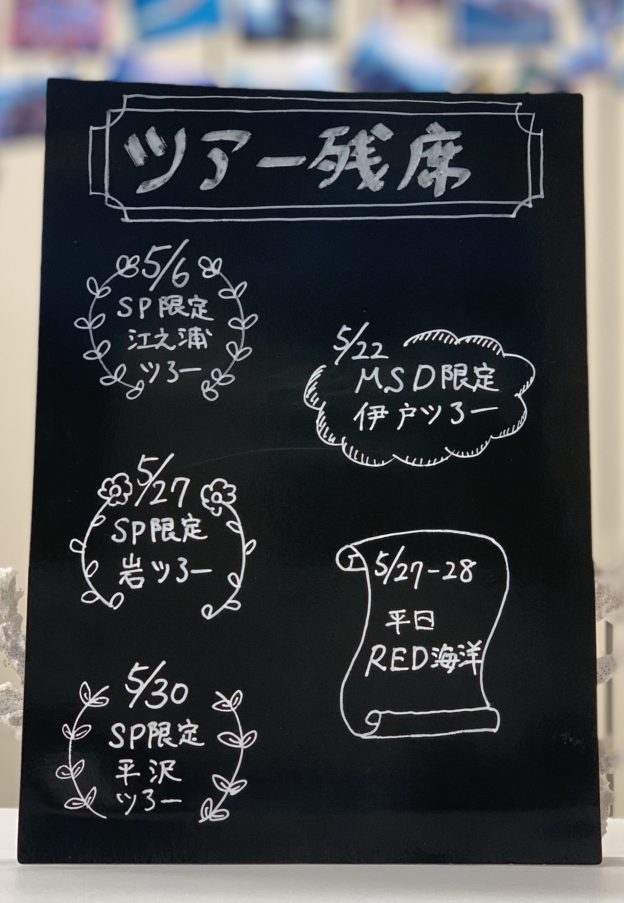 ツアー残席
5/6
SP限定
江之浦
ツろー
5/22
MSD限定
伊戸ツろー
5/27
SP限定
岩ツろー
5/27-28
平日
RED海洋
5/30
SP限定
平沢
ツろー